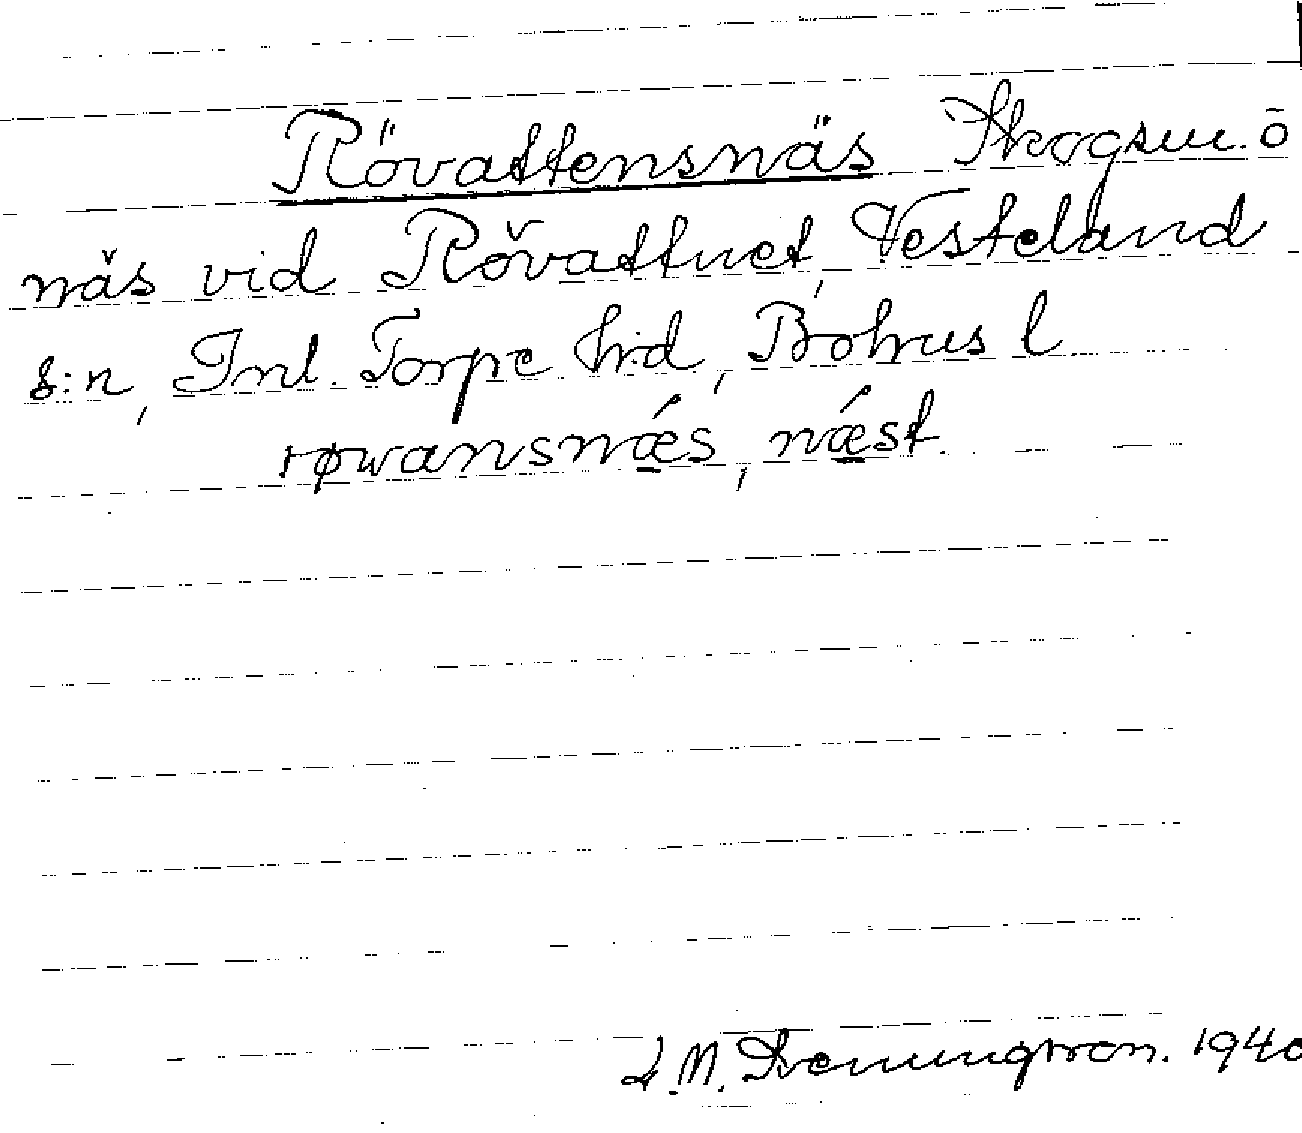 Rövattensnäs Skogsm. o
näs vid Rövattnet, Vesteland
s:n, Inl. Torpe hrd, Bohus l
røwansnǽs, nǽst.
1940